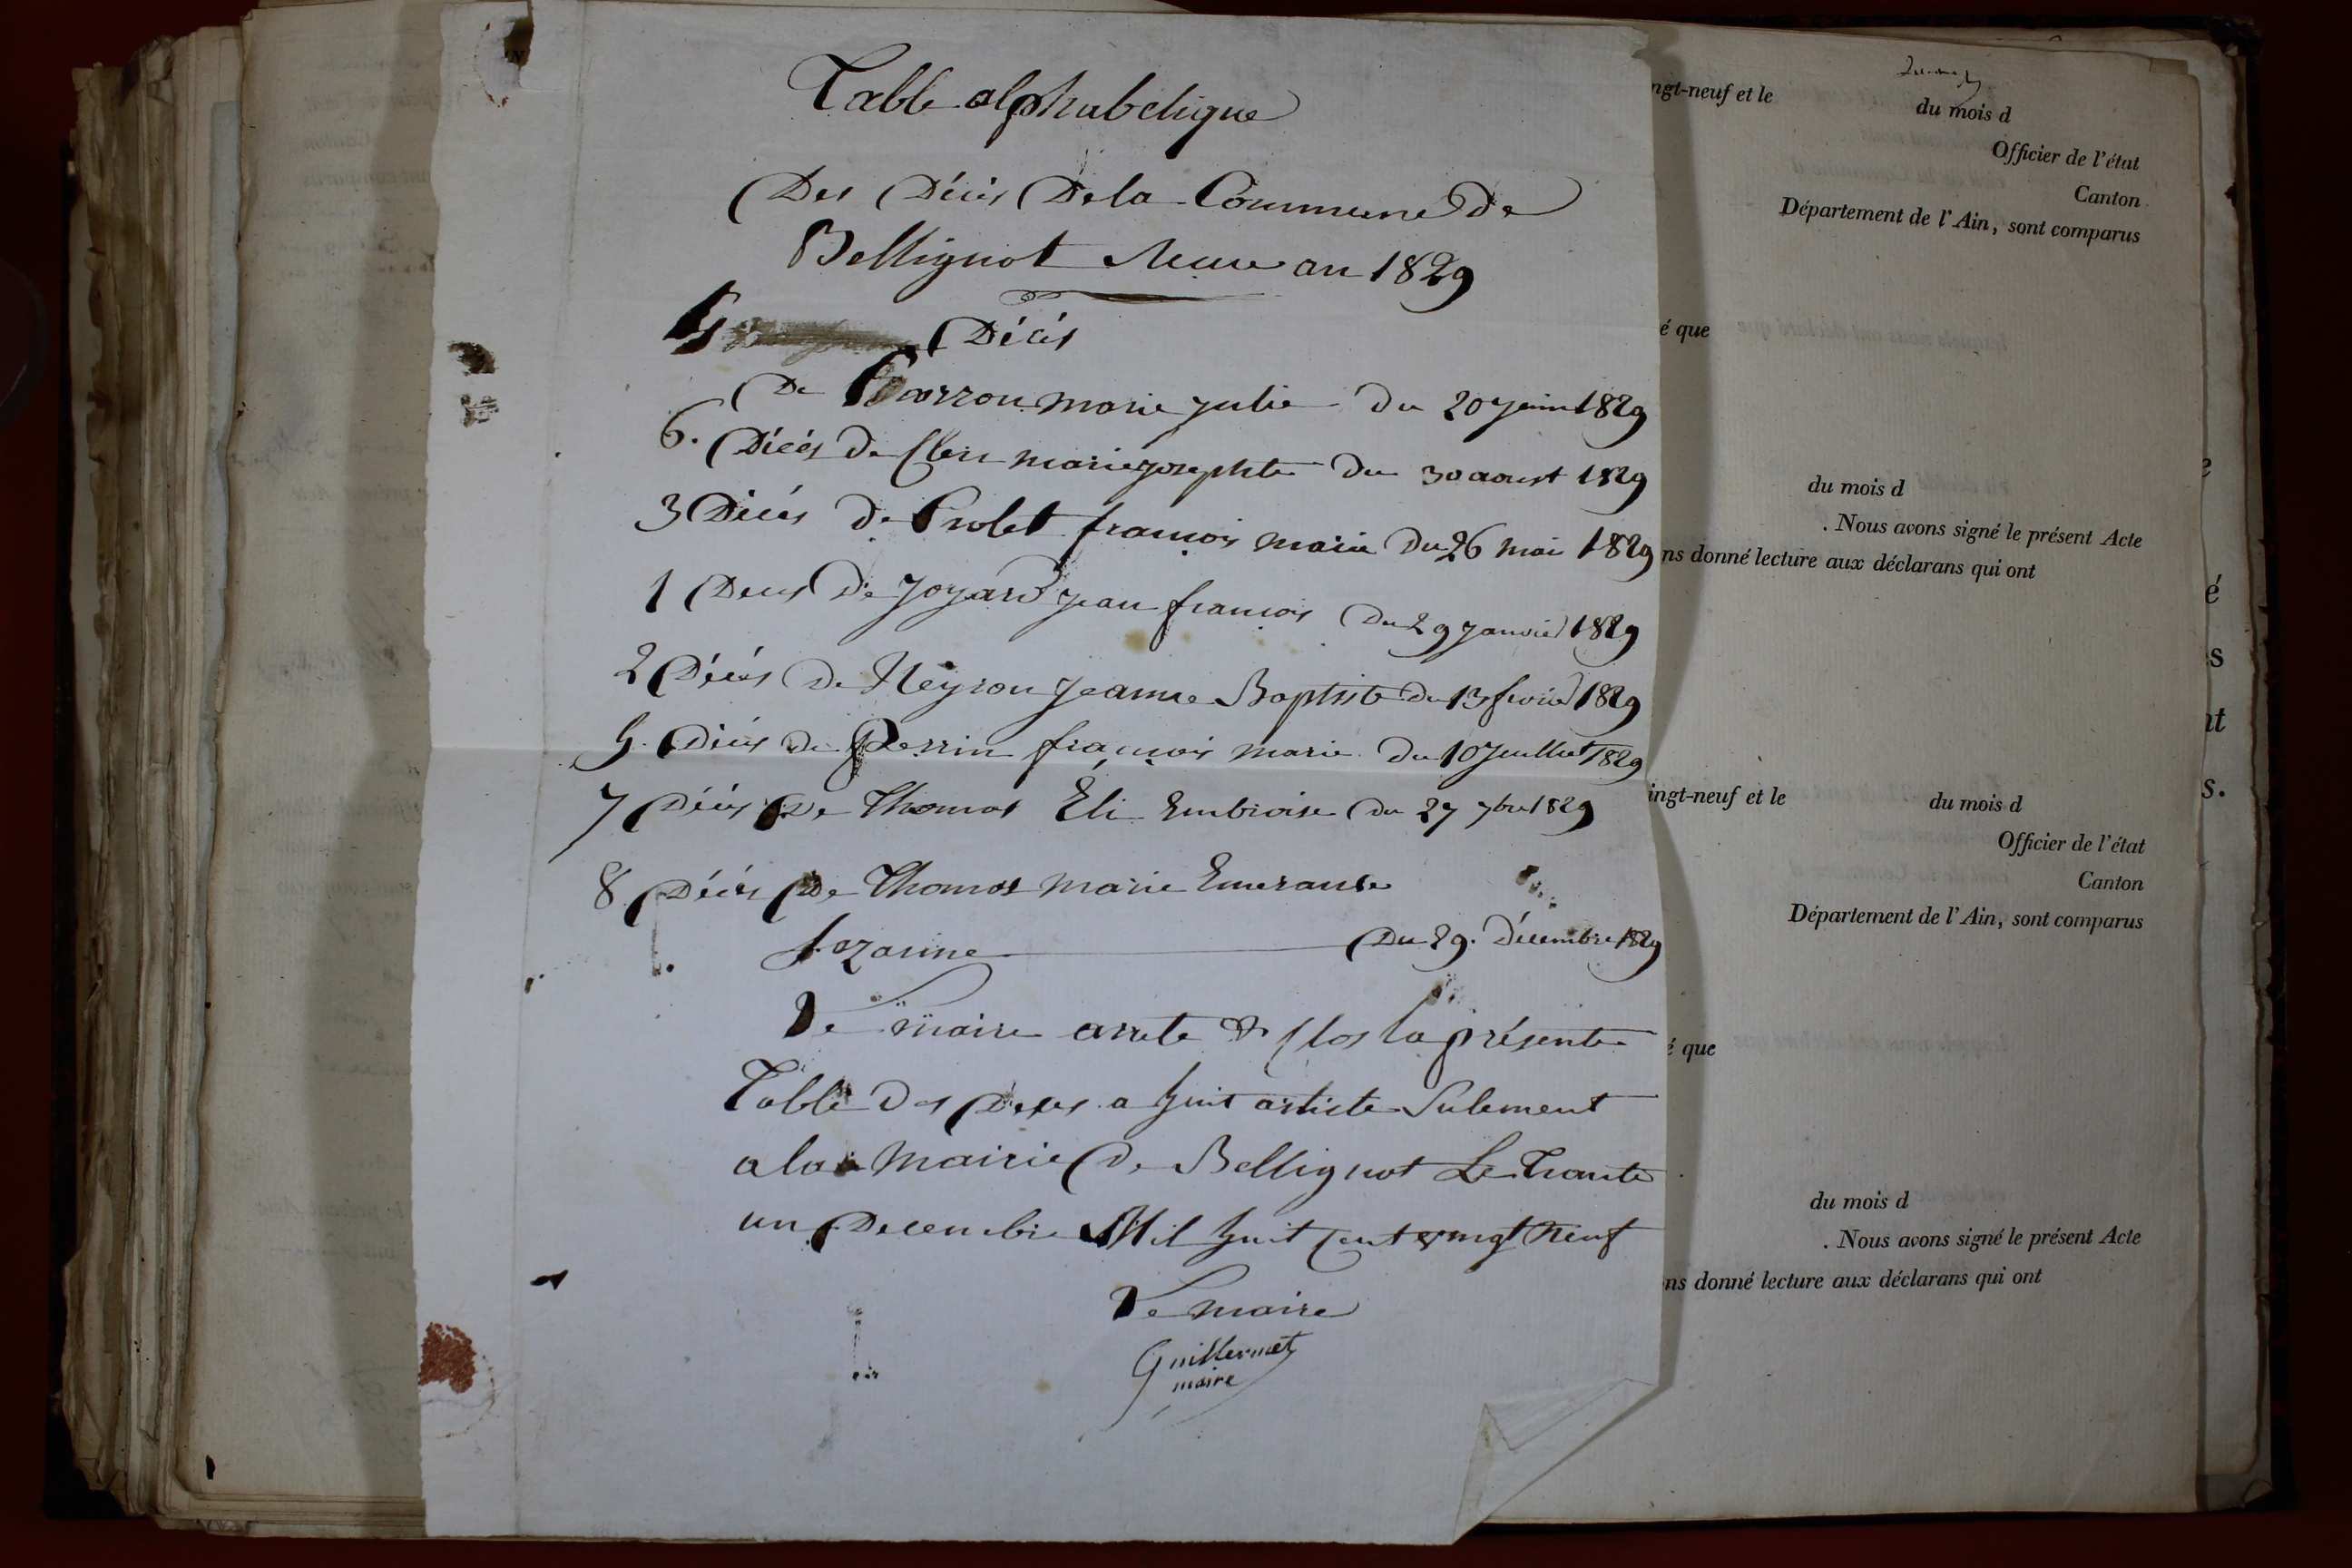 Table alphabetique
Des Décès De la Commune De
Bellignot Meme an 1829
4 Décès
De Carrou marie julie du 20 juin 1829
6. Décès De Clerc marie josephte du 30 aoust 1829
3 Décés De Crolet françois marie Du 26 mai 1829
1 Deces De Joyard jean francois Du 29 janvier 1829
2 Décés De Neyrou jeanne Baptiste Du 13 fevrier 1829
5. Décés De Perrin françois marie Du 10 juillet 1829
7 Décés De Thomas Eli Embroise Du 27 7bre 1829
8 Décés De Thomas marie Emeranse
Sozanne Du 29. Décembre 1829
Le maire arrete & Clos la présente
Table Des Deces a huit articte Sulement
a la Mairie De Bellignot Le Trante
un Decembre Mil huit Cent vingt Neuf
Le maire
Guillermet
maire
ngt-neuf et le du mois d
Officier de l'état
Canton
Département de l'Ain, sont comparus
é que
du mois d
. Nous avons signé le présent Acte
ns donné lecture aux déclarans qui ont
ingt-neuf et le du mois d
Officier de l'état
Canton
Département de l'Ain, sont comparus
é que
du mois d
. Nous avons signé le présent Acte
ns donné lecture aux déclarans qui ont
é
s
nt
s.